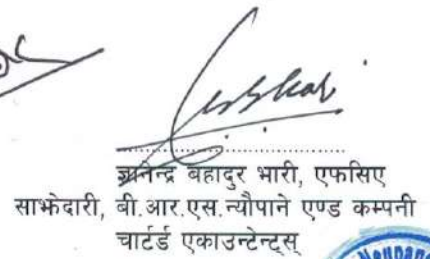 ज्ञानेन्द्र बहादुर भारी, एफसिए
साझेदारी, बी.आर.एस.न्यौपाने एण्ड कम्पनी
चार्टर्ड एकाउन्टेन्ट्स्
Neupane